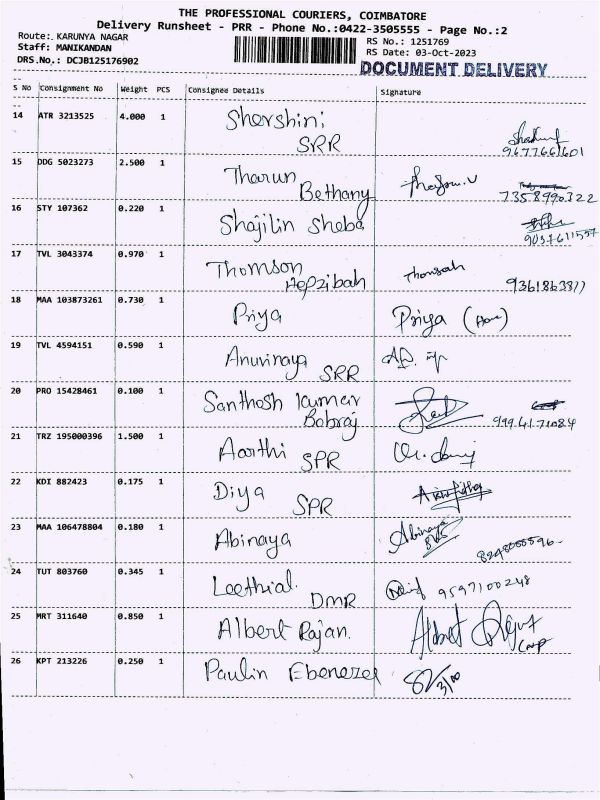 THE PROFESSIONAL COURIERS, COIMBATORE
Delivery Runsheet - PRR - Phone No.:0422-3505555 - Page No.:2
Route:. KARUNYA NAGAR RS No.: 1251769
Staff: MANIKANDAN RS Date: 03-Oct-2023
DRS.No.: DCJB125176902 DOCUMENT DELIVERY
S No Consignment No Weight PCS Consignee Details Signature
14 ATR 3213525 4.000 1 Shershini
SRR 9677661601
15 DDG 5023273 2.500 1 Tharun
Bethany 7358990322
16 STY 107362 0.220 1 Shajilin Sheba
9037611557
17 TVL 3043374 0.970 1 Thomson
Hepzibah 9361863877
18 MAA 103873261 0.730 1 Priya Priya
19 TVL 4594151 0.590 1 Anuvinaya
SRR
20 PRO 15428461 0.100 1 Santhosh kumar
Bobraj 9994171084
21 TRZ 195000396 1.500 1 Aarthi
SPR
22 KDI 882423 0.175 1 Diya
SPR
23 MAA 106478804 0.180 1 Abinaya Abinaya
24 TUT 803760 0.345 1 Leethial.
DMR 9597100248
25 MRT 311640 0.850 1 Albert Rajan.
26 KPT 213226 0.250 1 Paulin Ebenezer